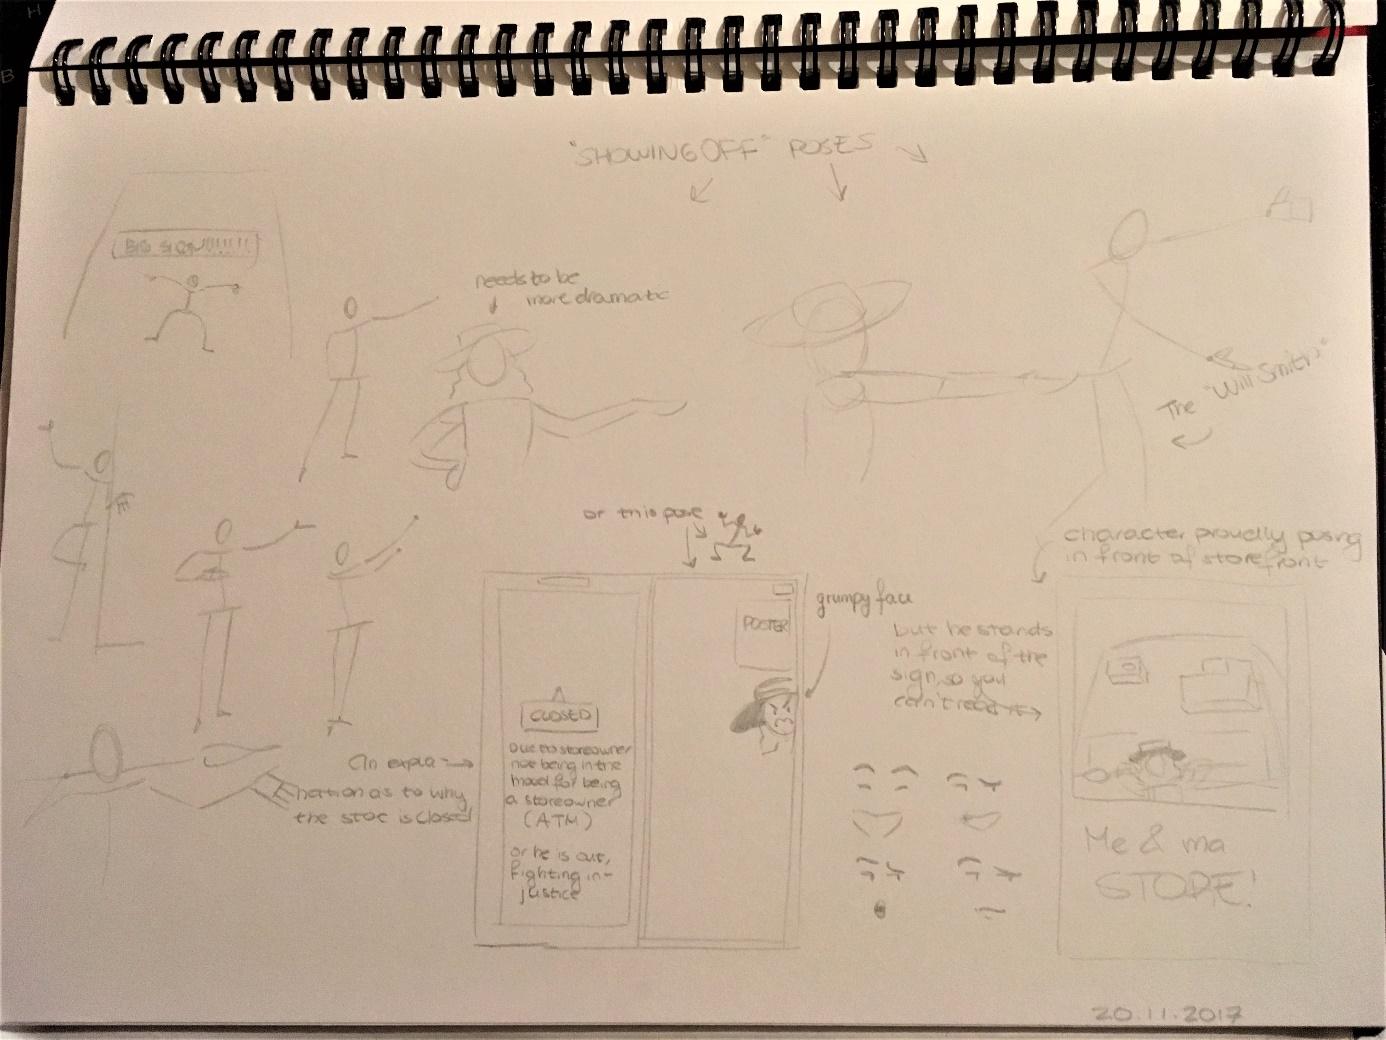 "SHOWING OFF" POSES
BIG SIGN!!!!!!!
needs to be
more dramatic
The "Will Smith"
or this pose
character proudly posing
in front of storefront
grumpy face
but he stands
in front of the
sign, so you
can't read it
POSTER
CLOSED
Due to storeowner
not being in the
mood for being
a storeowner
(ATM)
or he is out,
Fighting in-
justice
An expla-
nation as to why
the store is closed
Me & ma
STORE!
20.11.2017